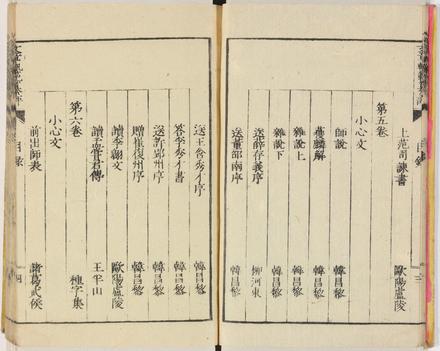 上范司諫書 歐陽廬陵
第五卷
小心文
師說 韓昌黎
獲麟解 韓昌黎
雜說上 韓昌黎
雜說下 韓昌黎
送薛存義序 柳河東
送董邵南序 韓昌黎
送王含秀才序 韓昌黎
答李秀才書 韓昌黎
送許郢州序 韓昌黎
贈崔復州序 韓昌黎
讀李翺文 歐陽廬陵
讀孟嘗君傳 王半山
第六卷
小心文 種字集
前出師表 諸葛武侯
目錄 四